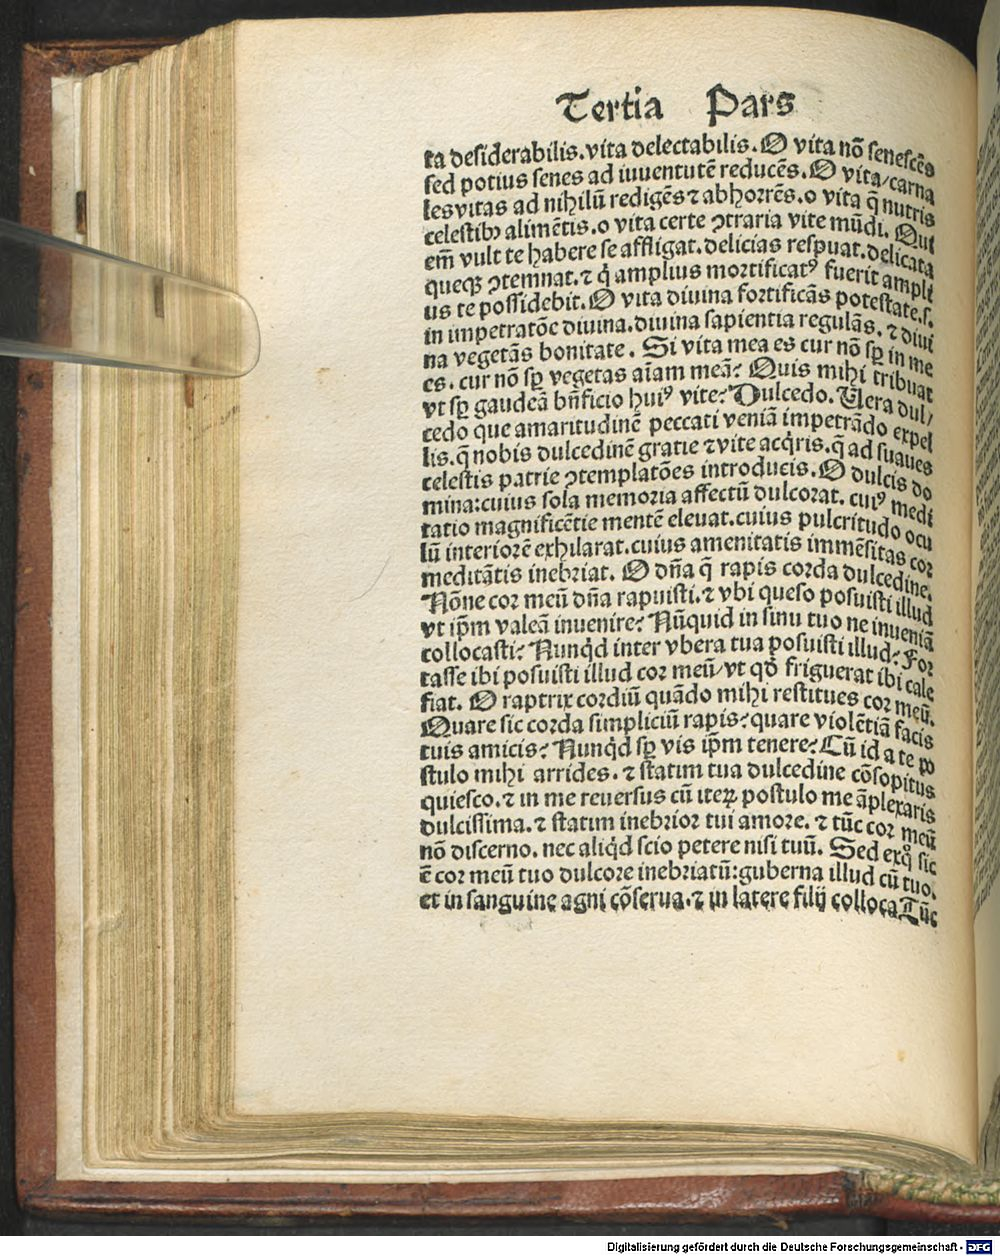 Tertia Pars
ta desiderabilis.vita delectabilis. O vita nō senescēs
sed potius senes ad iuuentutē reducēs. O vita/carna
les vitas ad nihilū redigēs ⁊ abhorrēs. o vita q̄ nutris
celestibꝫ alimētis. o vita certe ꝯtraria vite mūdi. Qui
em̄ vult te habere se affligat. delicias respuat. delicata
queqꝫ ꝯtemnat. ⁊ q̇ amplius mortificatꝰ fuerit ampli
us te possidebit. O vita diuina fortificās potestate.s.
in impetratōe diuina. diuina sapientia regulās. ⁊ diui
na vegetās bonitate. Si vita mea es cur nō sꝑ in me
es. cur nō sꝑ vegetas aīam meā? Quis mihi tribuat
vt sꝑ gaudeā bn̄ficio huiꝰ vite? Dulcedo. Uera dul/
cedo que amaritudinē peccati veniā impetrādo expel
lis. q̄ nobis dulcedinē gratie ⁊ vite acq̇ris. q̄ ad suaues
celestis patrie ꝯtemplatōes introducis. O dulcis do
mina: cuius sola memoria affectū dulcorat. cuiꝰ medi
tatio magnificētie mentē eleuat. cuius pulcritudo ocu
lū interiorē exhilarat. cuius amenitatis immēsitas cor
meditātis inebriat. O dn̄a q̄ rapis corda dulcedine.
Nōne cor meū dn̄a rapuisti. ⁊ vbi queso posuisti illud
vt ip̄m valeā inuenire? Nūquid in sinu tuo ne inueniā
collocasti? Nunq̇d inter vbera tua posuisti illud? For
tasse ibi posuisti illud cor meū/ vt qd̓ friguerat ibi cale
fiat. O raptrix cordiū quādo mihi restitues cor meū.
Quare sic corda simpliciū rapis? quare violētiā facis
tuis amicis? Nunq̇d sꝑ vis ip̄m tenere? Cū id a te po
stulo mihi arrides. ⁊ statim tua dulcedine cōsopitus
quiesco. ⁊ in me reuersus cū iteꝝ postulo me āplexaris
dulcissima. ⁊ statim inebrior tui amore. ⁊ tūc cor meū
nō discerno. nec aliq̇d scio petere nisi tuū. Sed exq̊ sic
ē cor meū tuo dulcore inebriatū: guberna illud cū tuo.
et in sanguine agni cōserua. ⁊ in latere filij colloca Tūc
Digitalisierung gefördert durch die Deutsche Forschungsgemeinschaft - DFG